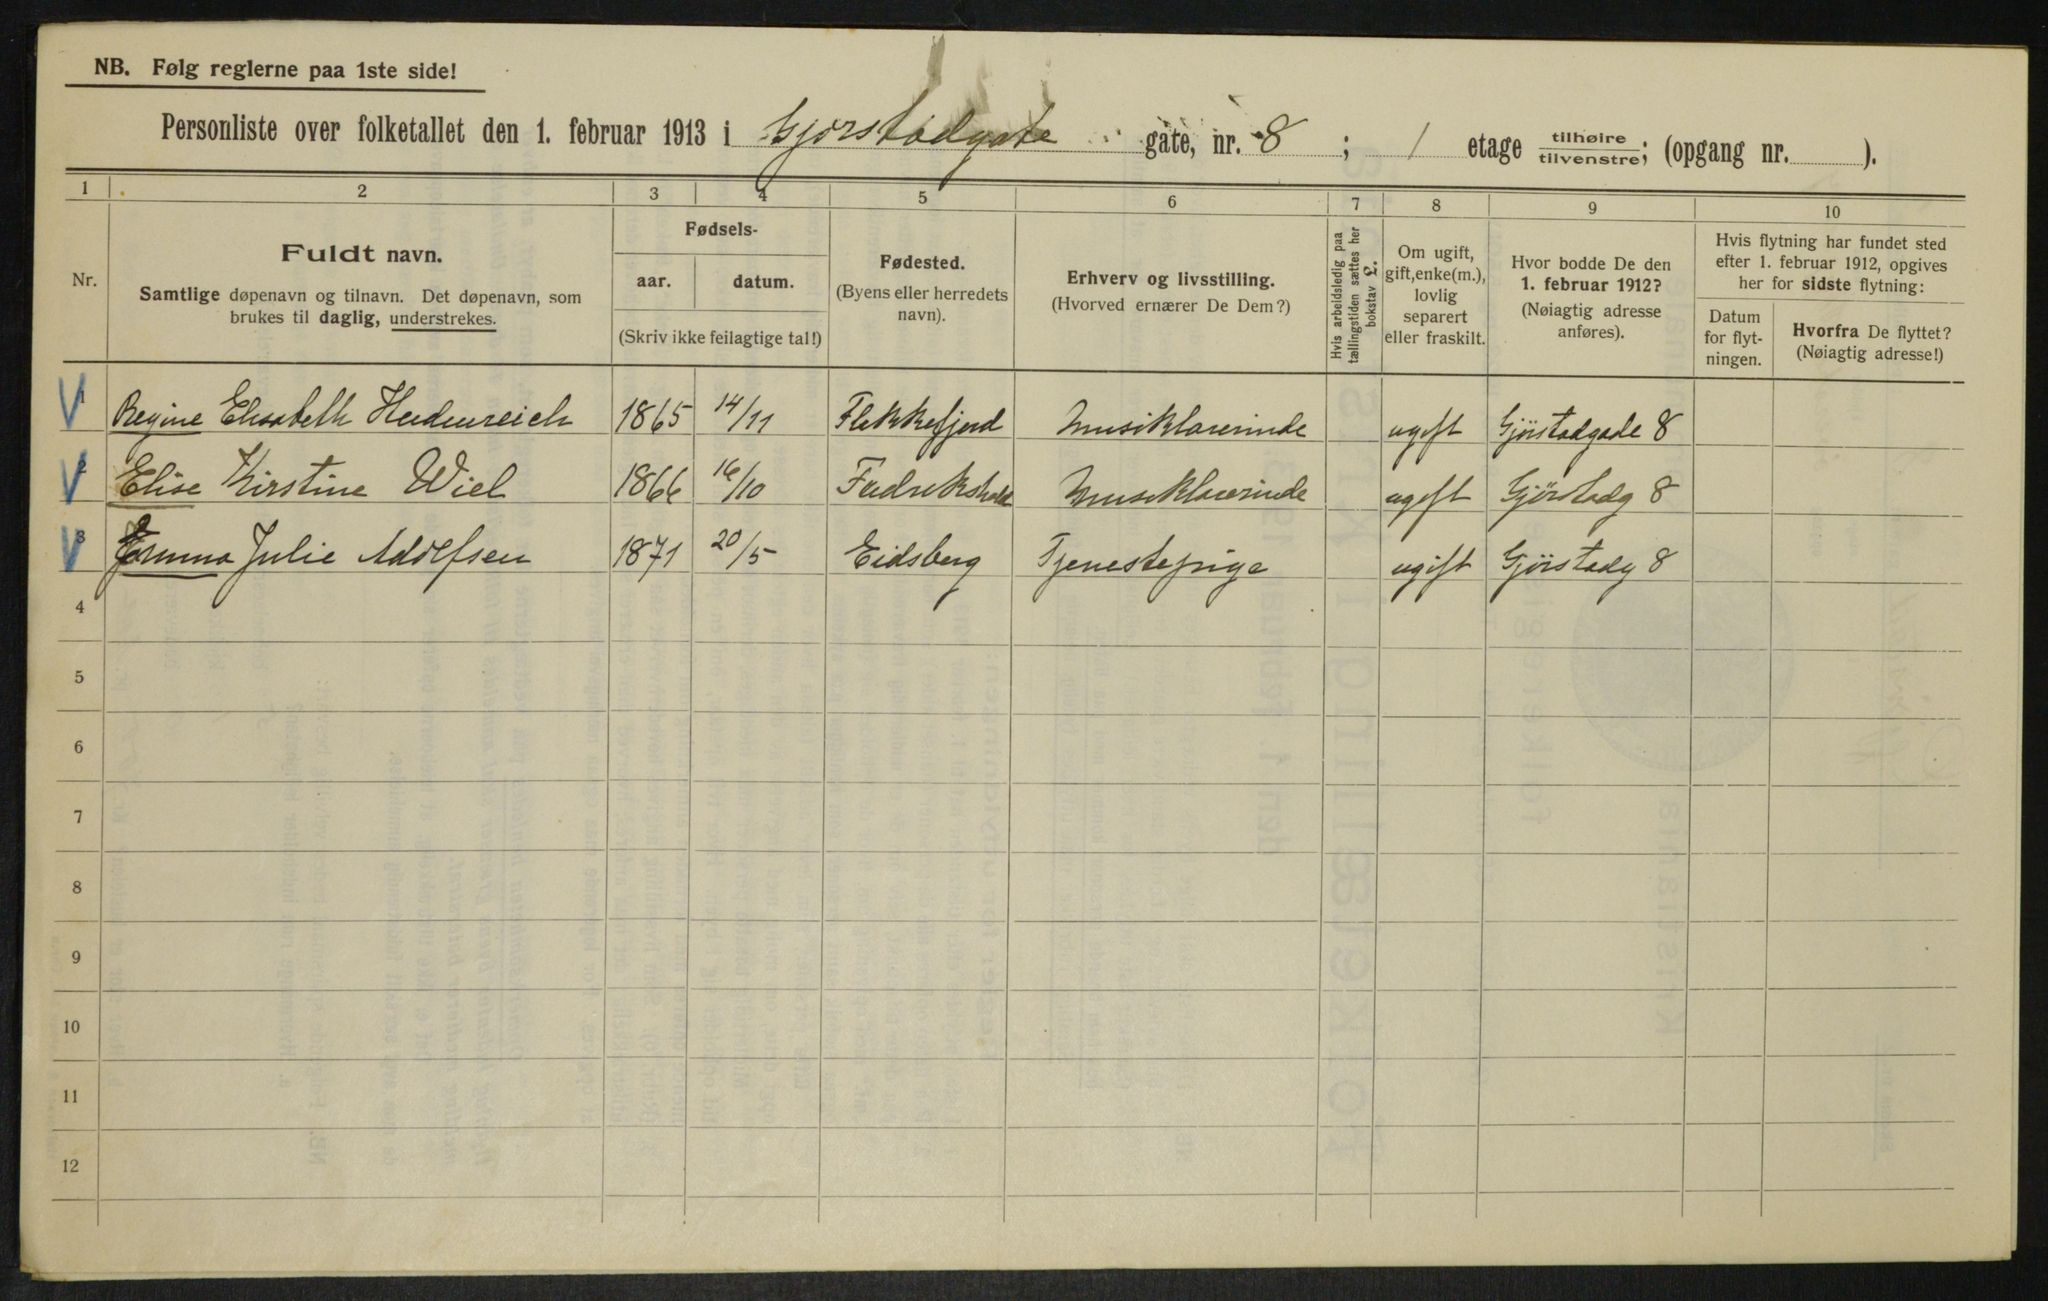 NB. Følg reglerne paa 1ste side!
Personliste over folketallet den 1. februar 1913 i Gjørstadgate gate, nr. 8 ; 1 etage tilhøire tilvenstre; (opgang nr. ).
1 2 3 4 5 6 7 8 9 10
Nr.
Fuldt navn.
Samtlige døpenavn og tilnavn. Det døpenavn, som
brukes til daglig, understrekes.
Fødsels-
aar. datum.
(Skriv ikke feilagtige tal!)
Fødested.
(Byens eller herredets
navn).
Erhverv og livsstilling.
(Hvorved ernærer De Dem?)
Hvis arbeidsledig paa
tællingstiden sættes her
bokstav £.
Om ugift,
gift, enke(m.),
lovlig
separert
eller fraskilt.
Hvor bodde De den
1. februar 1912?
(Nøiagtig adresse
anføres).
Hvis flytning har fundet sted
efter 1. februar 1912, opgives
her for sidste flytning:
Datum
for flyt-
ningen.
Hvorfra De flyttet?
(Nøiagtig adresse!)
1 Regine Elisabeth Heidenreich 1865 14/11 Flekkefjord Musiklærerinde ugift Gjörstadgade 8
2 Elise Kirstine Wiel 1866 16/10 Fredrikshald Musiklærerinde ugift Gjörstadg 8
3 Emma Julie Adolfsen 1871 20/5 Eidsberg Tjenestepige ugift Gjörstadg 8
4
5
6
7
8
9
10
11
12